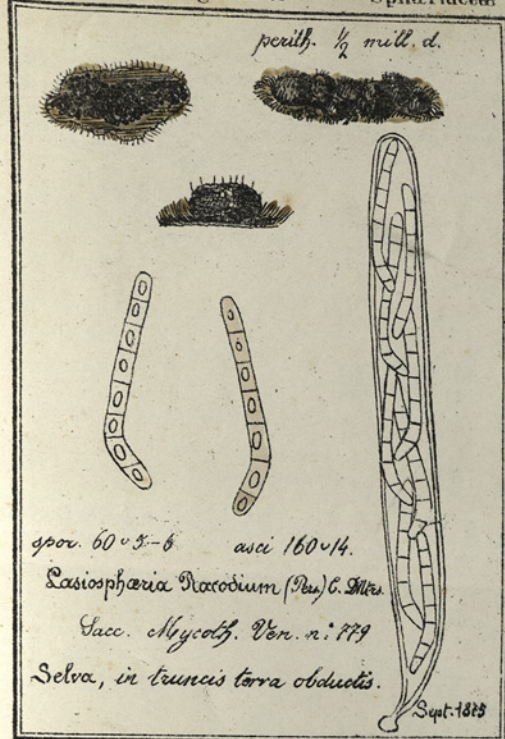 Sphæriaceæ
perith. ½ mill. d.
spor. 60 v 5-6 asci 160 v 14.
Lasiosphæria Racodium (Pers.) C. DNtrs.
Sacc. Mycoth. Ven. n.º 779
Selva, in truncis terra obductis.
Sept. 1875